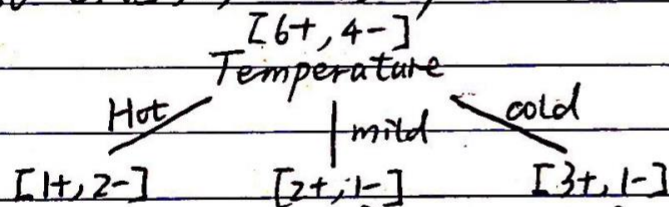 [6+, 4-]
Temperature
Hot mild cold
[1+, 2-] [2+, 1-] [3+, 1-]